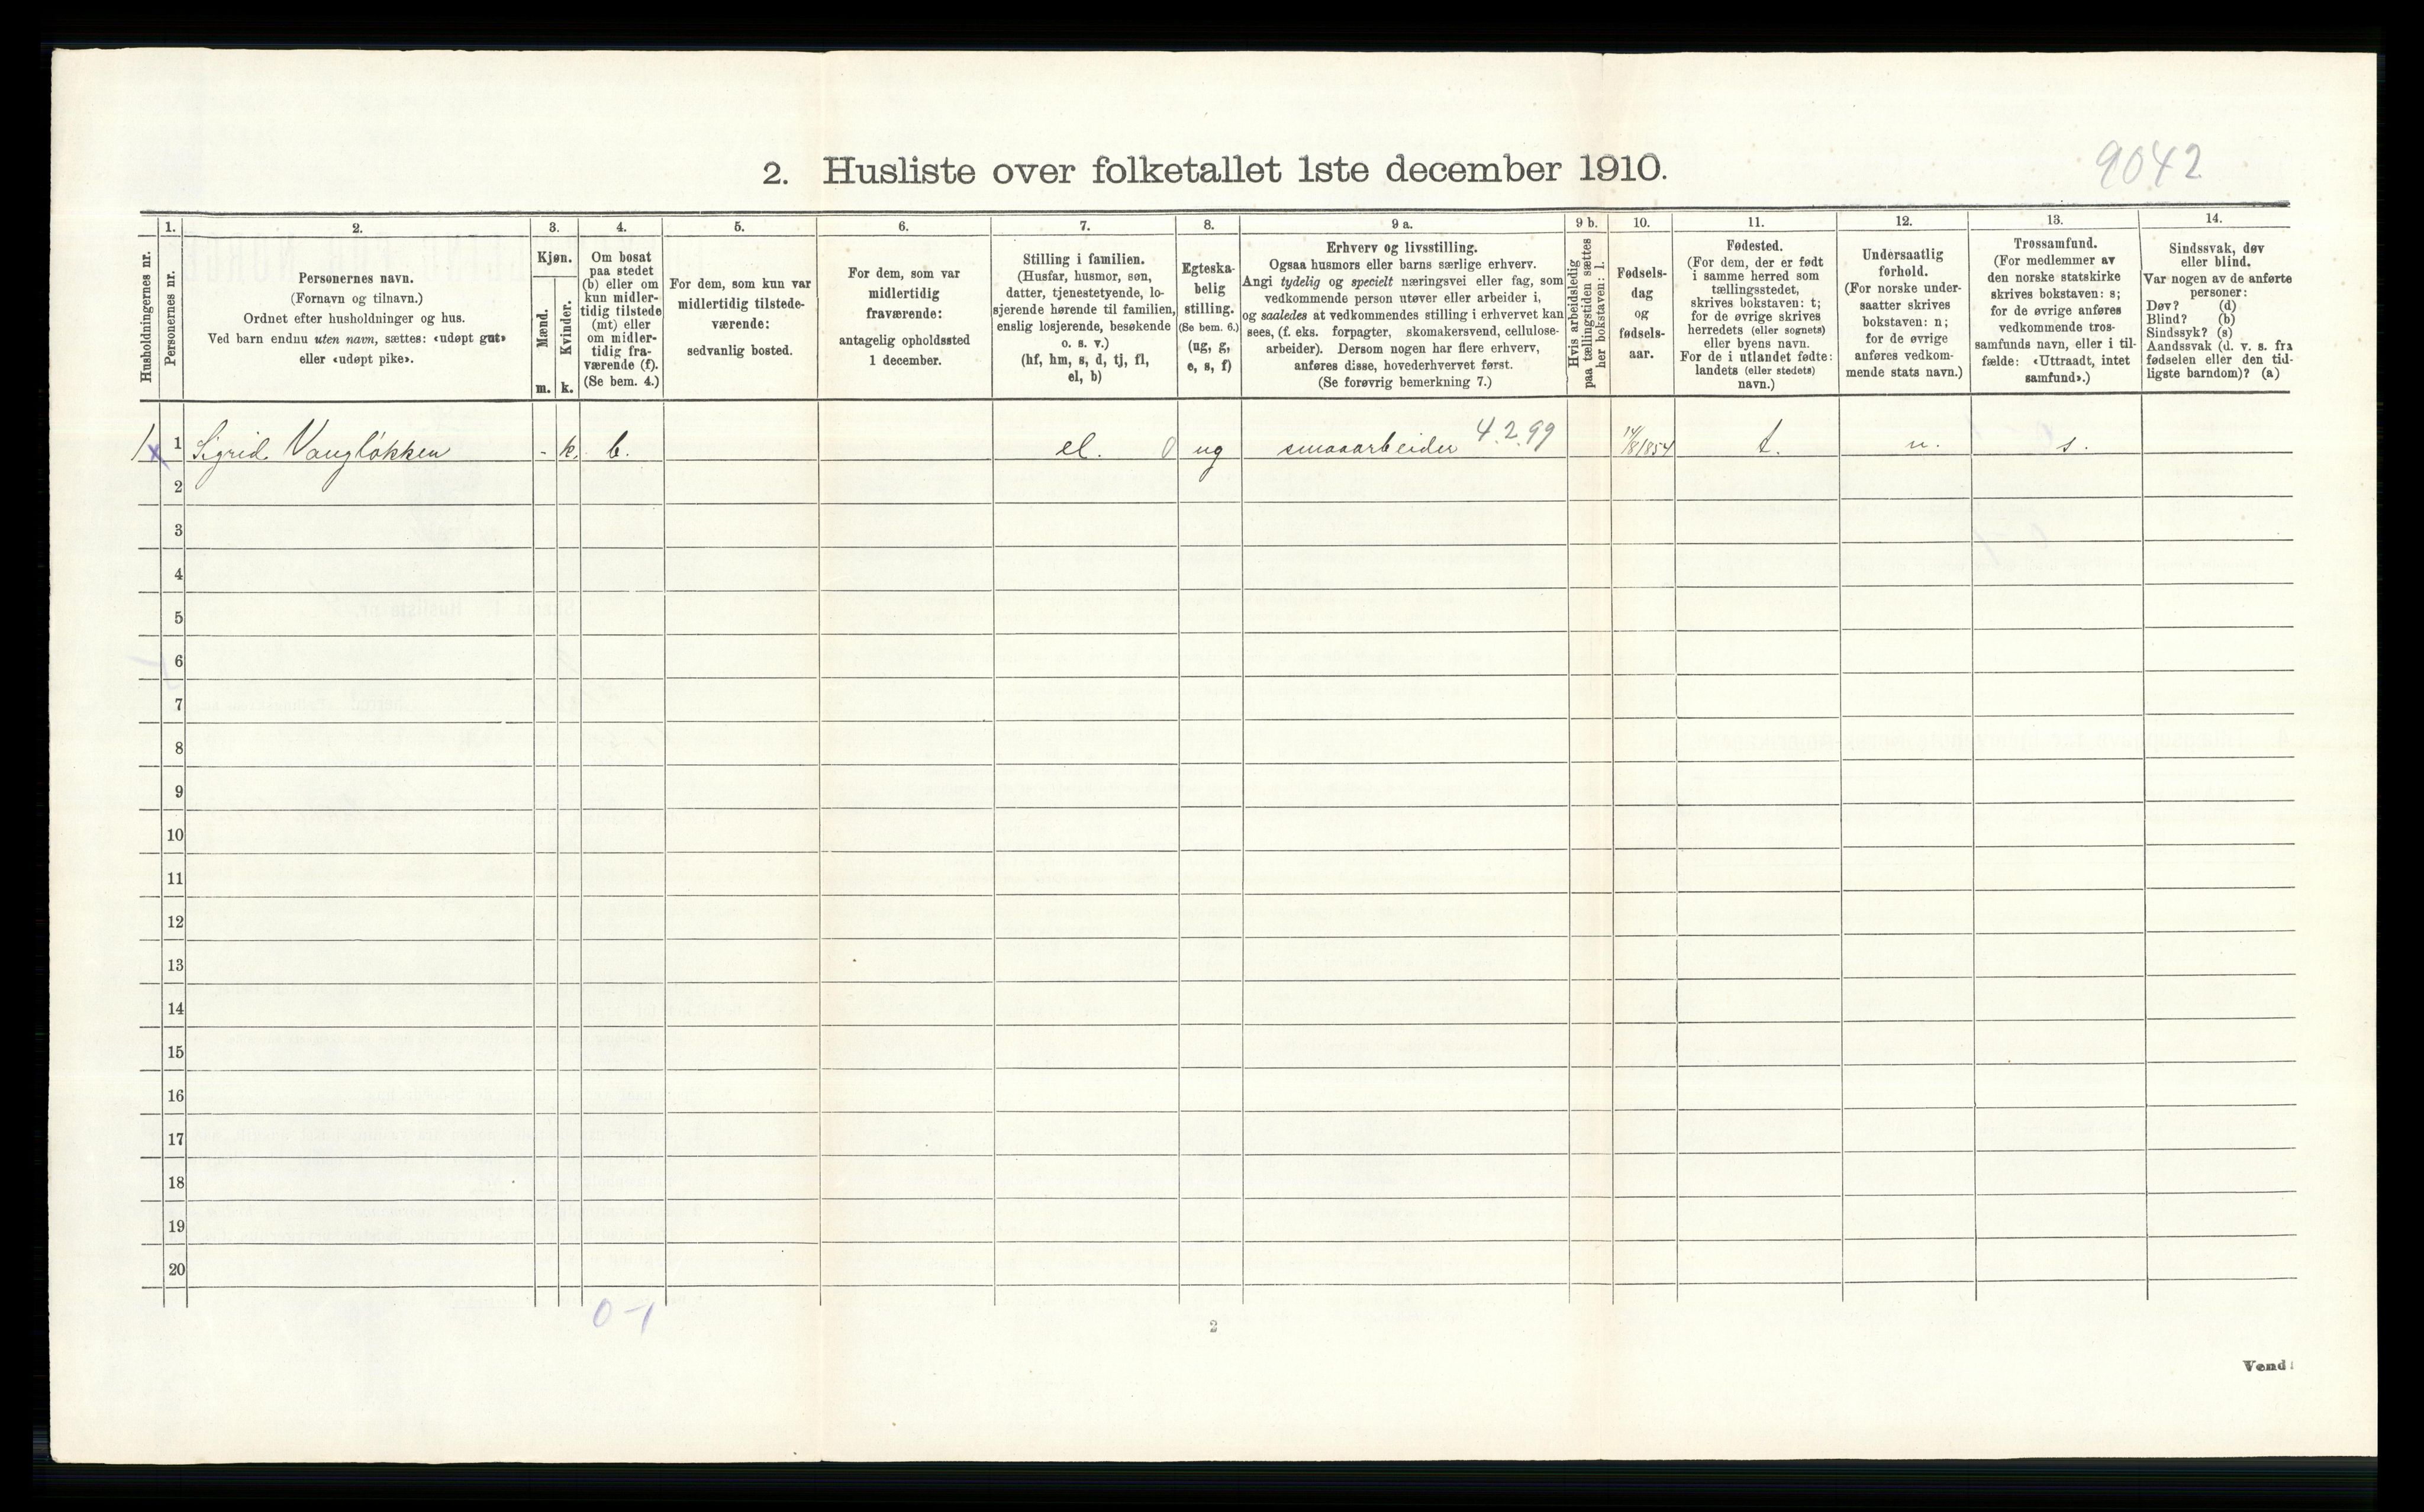 2. Husliste over folketallet 1ste december 1910.
9042
Husholdningernes nr.
1.
Personernes nr.
2.
Personernes navn.
(Fornavn og tilnavn.)
Ordnet efter husholdninger og hus.
Ved barn endnu uten navn, sættes: «udøpt gut»
eller «udøpt pike».
3.
Kjøn.
Mænd.
m.
Kvinder.
k.
4.
Om bosat
paa stedet
(b) eller om
kun midler-
tidig tilstede
(mt) eller
om midler-
tidig fra-
værende (f).
(Se bem. 4.)
5.
For dem, som kun var
midlertidig tilstede-
værende:
sedvanlig bosted.
6.
For dem, som var
midlertidig
fraværende:
antagelig opholdssted
1 december.
7.
Stilling i familien.
(Husfar, husmor, søn,
datter, tjenestetyende, lo-
sjerende hørende til familien,
enslig losjerende, besøkende
o. s. v.)
(hf, hm, s, d, tj, fl,
el, b)
8.
Egteska-
belig
stilling.
(Se bem. 6.)
(ug, g,
e, s, f)
9 a.
Erhverv og livsstilling.
Ogsaa husmors eller barns særlige erhverv.
Angi tydelig og specielt næringsvei eller fag, som
vedkommende person utøver eller arbeider i,
og saaledes at vedkommendes stilling i erhvervet kan
sees, (f. eks. forpagter, skomakersvend, cellulose-
arbeider). Dersom nogen har flere erhverv,
anføres disse, hovederhvervet først.
(Se forøvrig bemerkning 7.)
9 b.
Hvis arbeidsledig
paa tællingstiden sættes
her bokstaven: l.
10.
Fødsels-
dag
og
fødsels-
aar.
11.
Fødested.
(For dem, der er født
i samme herred som
tællingsstedet,
skrives bokstaven: t;
for de øvrige skrives
herredets (eller sognets)
eller byens navn.
For de i utlandet fødte:
landets (eller stedets)
navn.)
12.
Undersaatlig
forhold.
(For norske under-
saatter skrives
bokstaven: n;
for de øvrige
anføres vedkom-
mende stats navn.)
13.
Trossamfund.
(For medlemmer av
den norske statskirke
skrives bokstaven: s;
for de øvrige anføres
vedkommende tros-
samfunds navn, eller i til-
fælde: «Uttraadt, intet
samfund».)
14.
Sindssvak, døv
eller blind.
Var nogen av de anførte
personer:
Døv? (d)
Blind? (b)
Sindssyk? (s)
Aandssvak (d. v. s. fra
fødselen eller den tid-
ligste barndom)? (a)
1 x 1 Sigrid Vangløkken - k. b. el. 0 ug smaaarbeider 4.2.99 14/8 1854 t. n. s.
2
3
4
5
6
7
8
9
10
11
12
13
14
15
16
17
18
19
20
0-1
2
Vend!